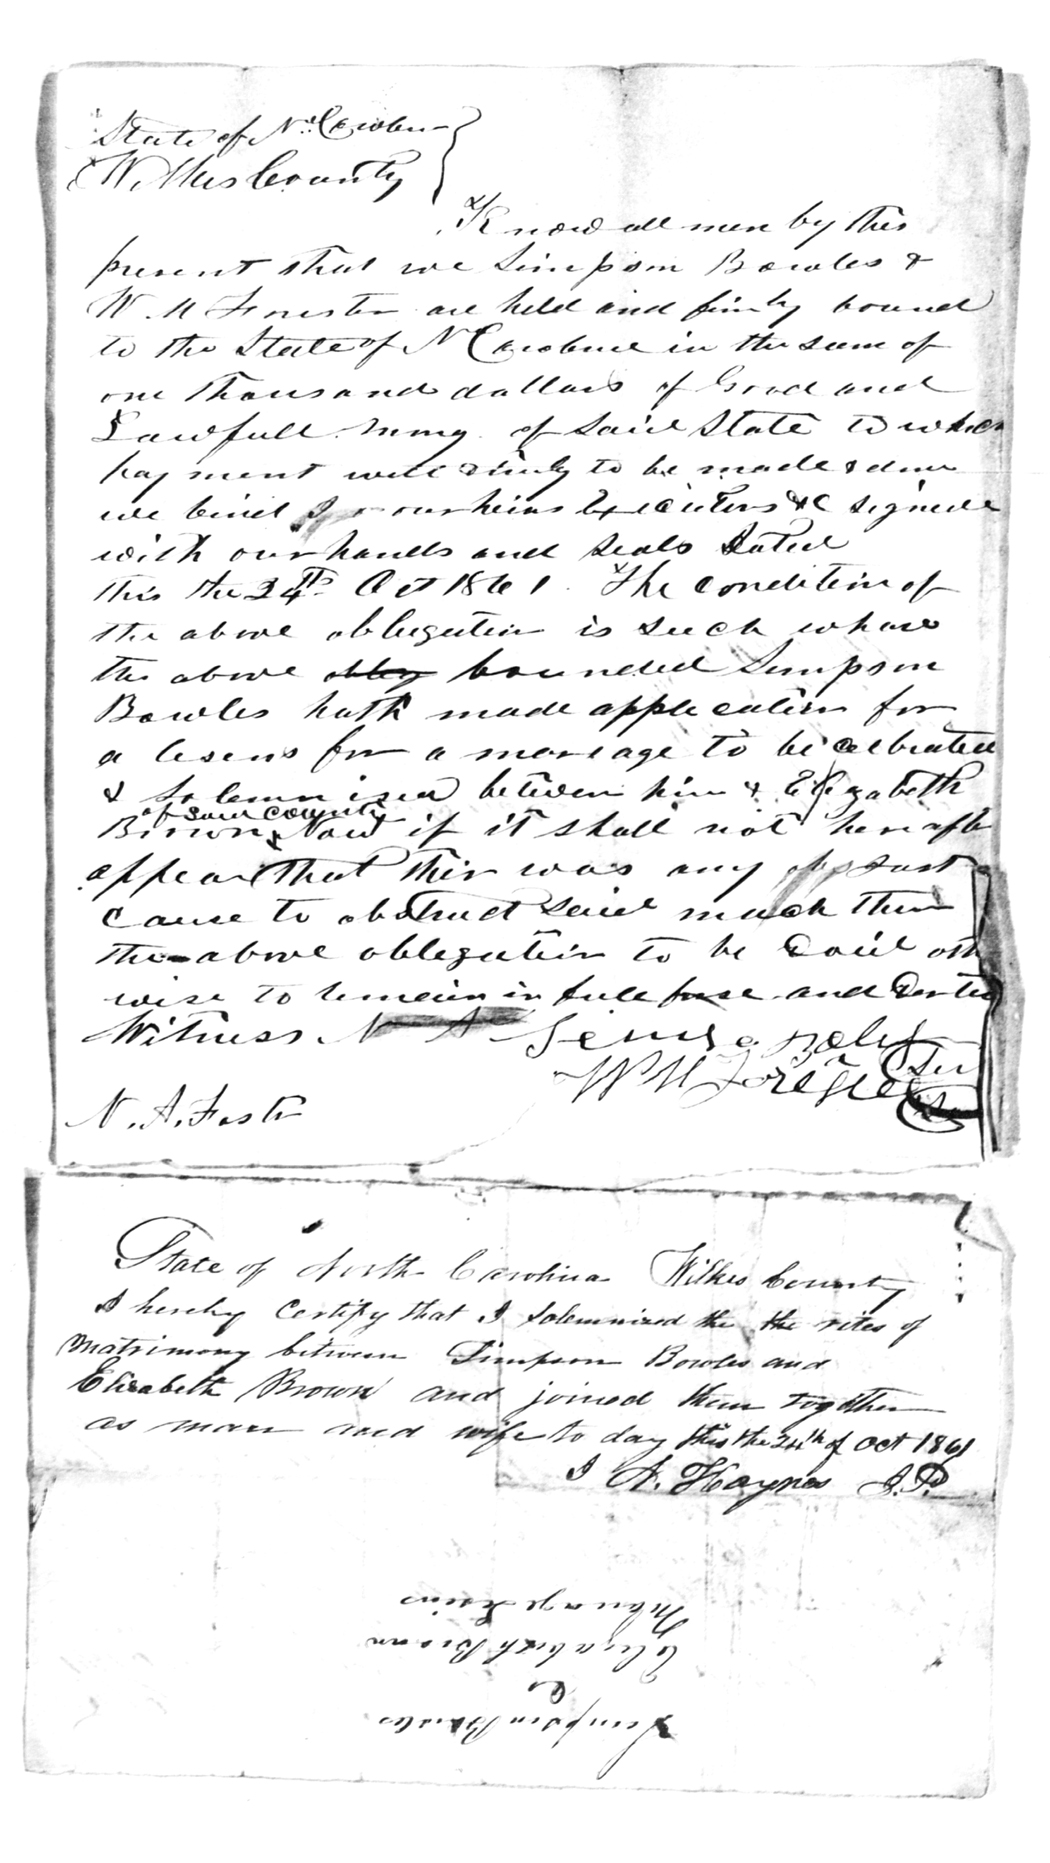 State of N. Carolin
Wilkes County
Know all men by this
present that we Simpson Bowles &
W. M Forester are held and firmly bound
to the State of N Caroline in the sum of
one thousand dollars of Good and
Lawfull mony of said State to which
payment well & truly to be made & don
we bind our heirs Executors &C signed
with our hands and seals Dated
this the 24th Oct 1861 The condition of
the above obligation is such whare
the above bounded Simpson
Bowles hath made application for
a lisens for a marage to be celbrated
& Solemnised between him & Elizabeth
of said county
Brown Now if it shall not hereafte
appear that thir was any just
cause to obstruct said much then
the above obligation to be void oth
wise to remain in full forse and vertu
Witness Simpson Boles
W M Forester
N. A. Foster
State of North Carolina Wilkes County
I hereby certify that I solemnized the the rites of
matrimony between Simpson Bowles and
Elizabeth Brown and joined them together
as man and wife to day this the 24th of Oct 1861
J A. Haynes J.P.
Simpson Bowles
to
Elizabeth Brown
Marage Lisins